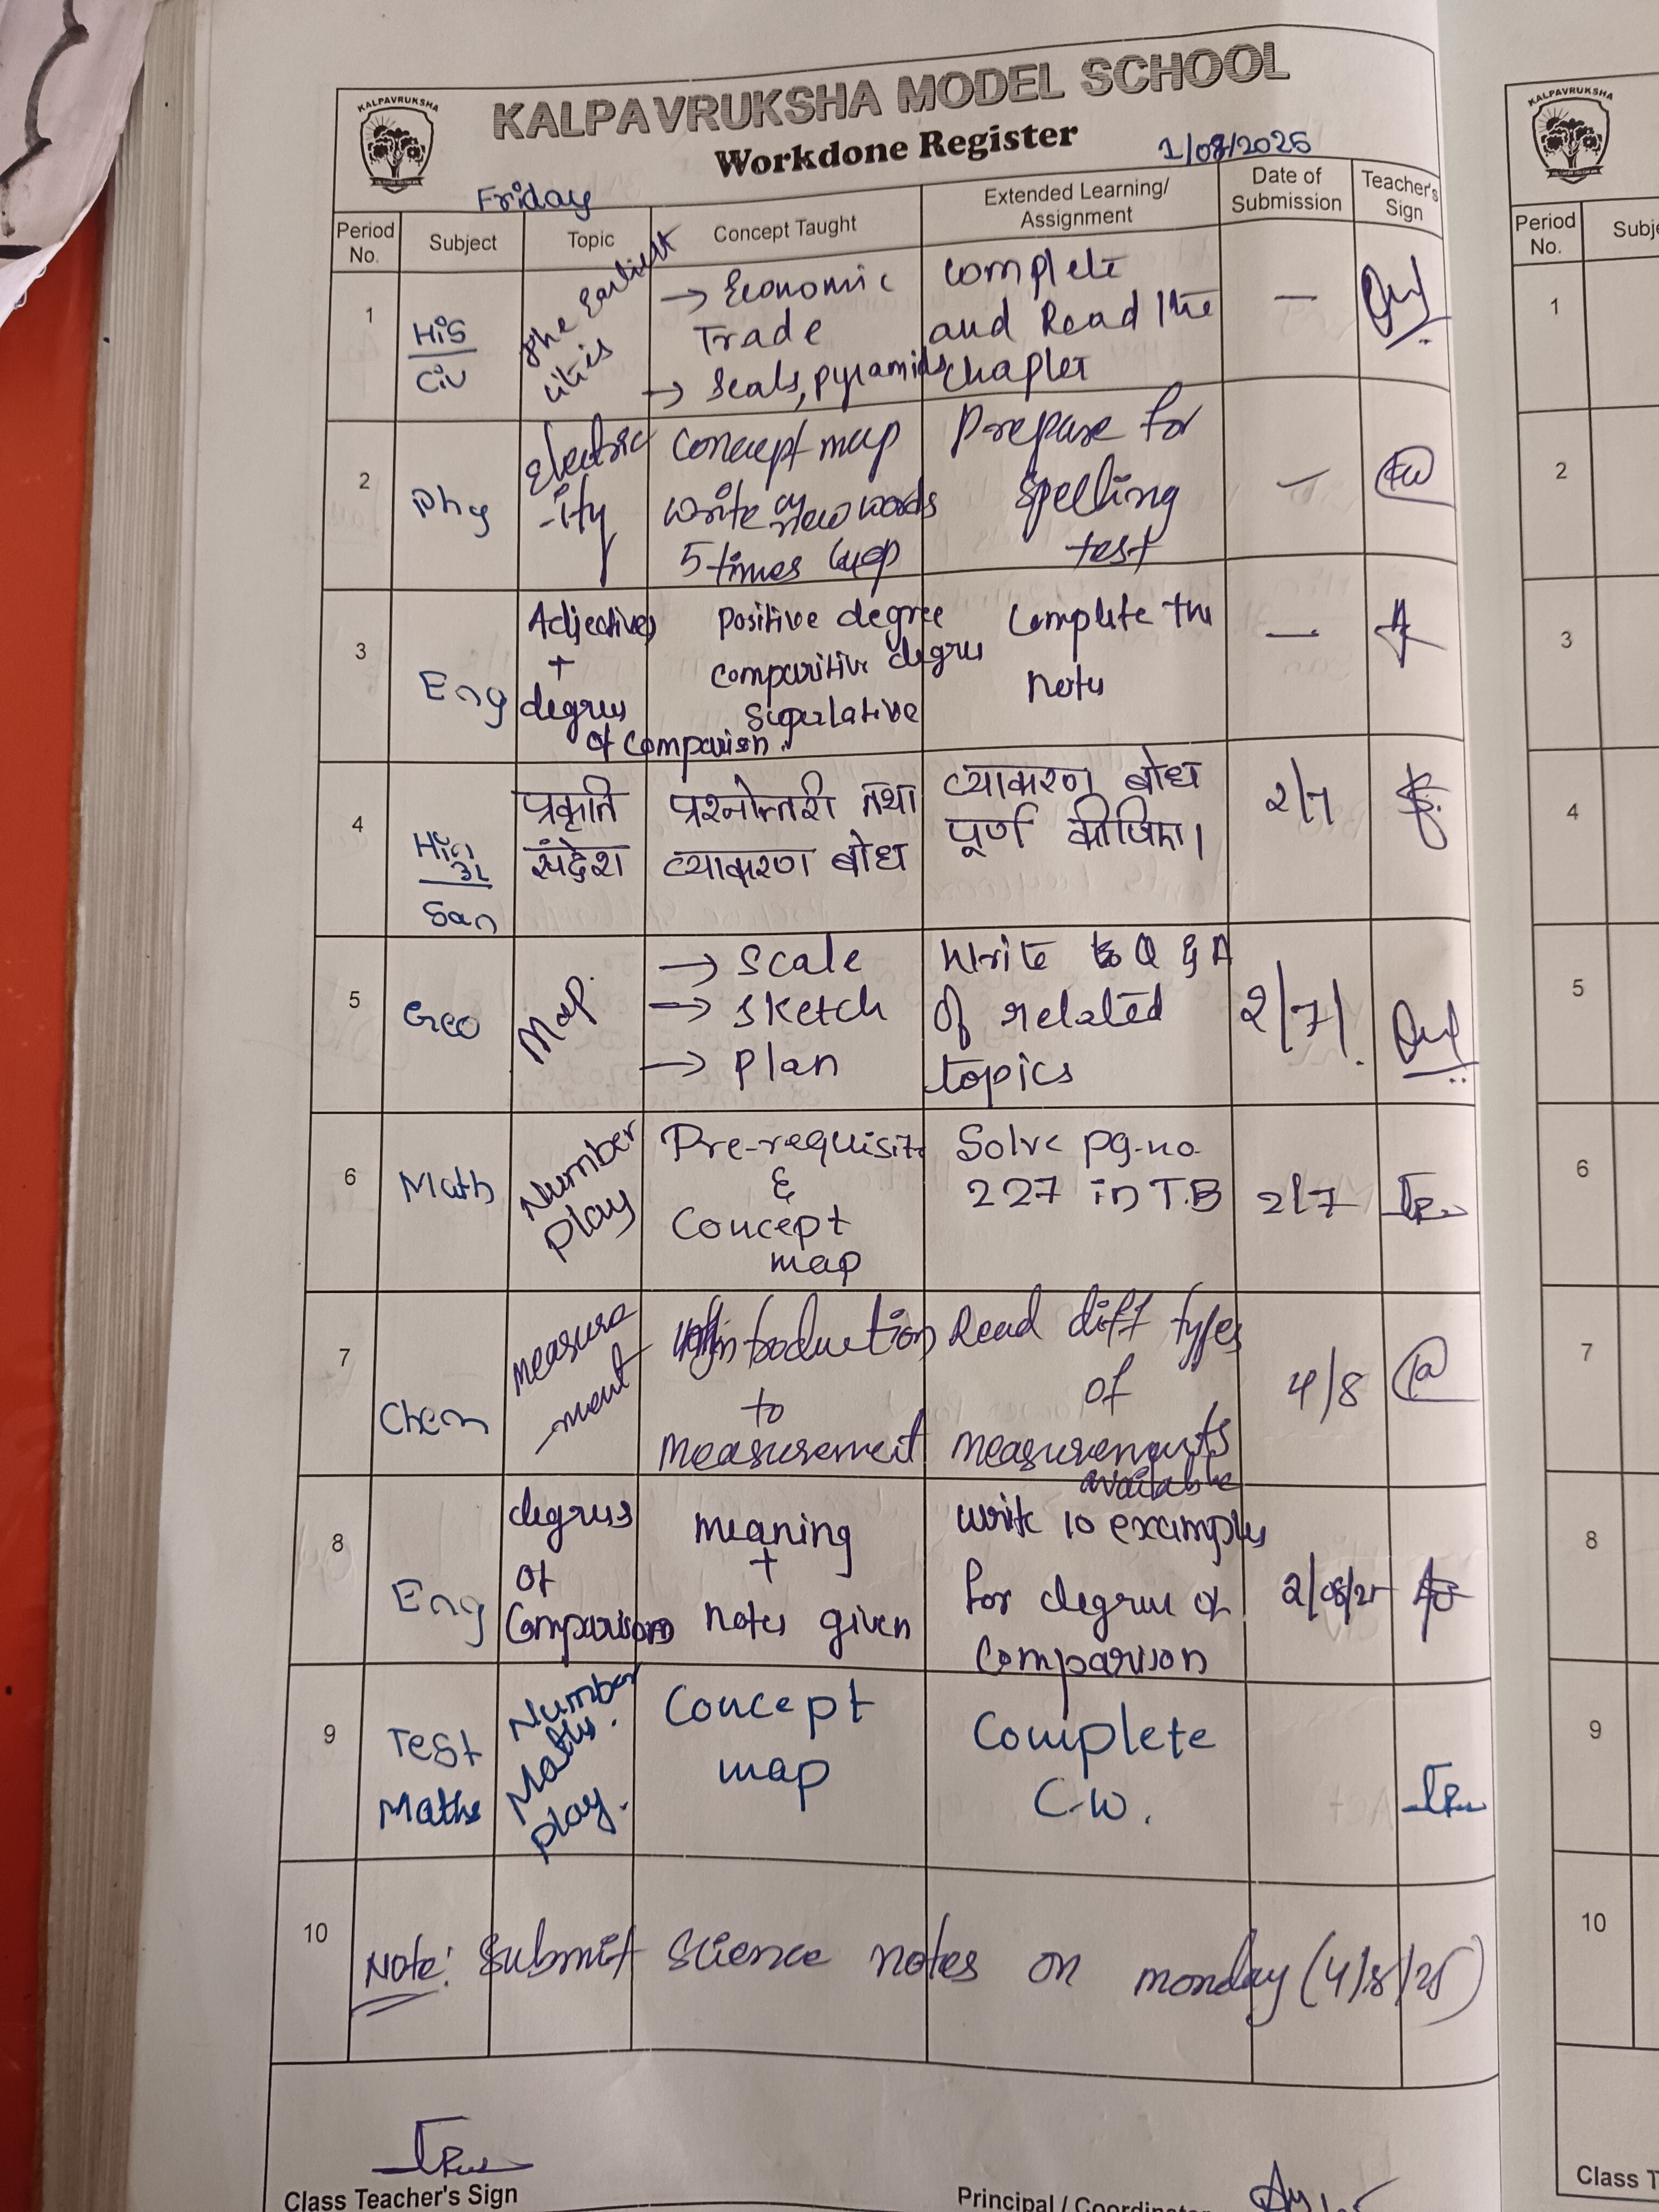 KALPAVRUKSHA
KALPAVRUKSHA MODEL SCHOOL
Workdone Register
1/08/2025
Friday
Period No.
Subject
Topic
Concept Taught
Extended Learning/ Assignment
Date of Submission
Teacher's Sign
1
His
Civ
The Earliest
cities
→ Economic
Trade
→ Seals, pyramids
complete
and Read the
chapter
—
2
Phy
Electric
-ity
Concept map
write new words
5 times
Prepare for
spelling
test
—
3
Eng
Adjectives
+
degrees
of comparison
Positive degree
comparitive degree
superlative
Complete the
notes
—
4
Hin
3L
San
प्रकृति
संदेश
प्रश्नोत्तरी तथा
व्याकरण बोध
व्याकरण बोध
पूर्ण कीजिए।
2/7
5
Geo
Map.
→ Scale
→ sketch
→ plan
Write Q & A
of related
topics
2/7/.
6
Math
Number
play
Pre-requisite
&
Concept
map
Solve pg.no
227 in T.B
2/7
7
Chem
measure
-ment
Introduction
to
measurement
Read diff types
of
measurements
available
4/8
8
Eng
degrees
of
Comparison
meaning
+
notes given
write 10 examples
for degree of
comparison
2/08/25
9
Test
Maths
Number
Maths.
play.
Concept
map
Complete
C.W.
10
Note: Submit Science notes on monday (4/8/25)
Class Teacher's Sign
Principal /
KALPAVRUKSHA
Period No.
1
2
3
4
5
6
7
8
9
10